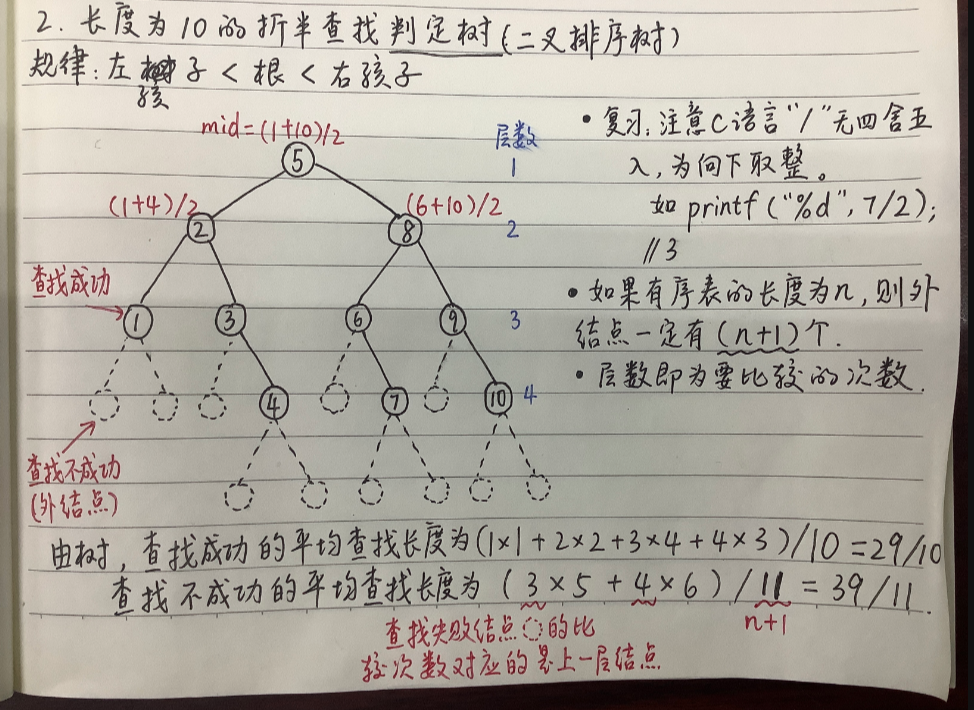 2. 长度为10的折半查找判定树(二叉排序树)
规律:左孩子 < 根 < 右孩子
mid=(1+10)/2
层数
5
1
(1+4)/2
(6+10)/2
2
8
2
查找成功
1
3
6
9
3
4
7
10
4
查找不成功
(外结点)
• 复习:注意C语言"/"无四舍五
入,为向下取整。
如 printf("%d", 7/2);
//3
• 如果有序表的长度为n,则外
结点一定有(n+1)个.
• 层数即为要比较的次数.
由树,查找成功的平均查找长度为(1×1+2×2+3×4+4×3)/10=29/10
查找不成功的平均查找长度为(3×5+4×6)/11=39/11.
n+1
查找失败结点的比
较次数对应的是上一层结点